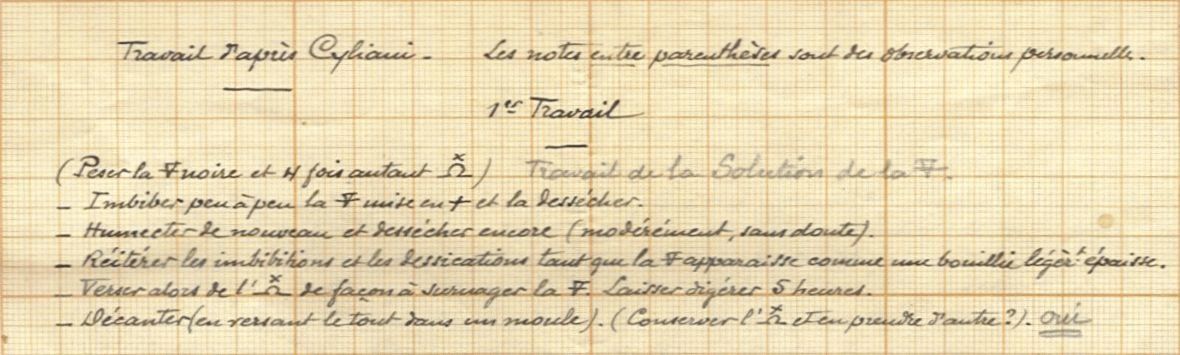 Travail d'après Cyliani - Les notes entre parenthèses sont des observations personnelles.
1er Travail
(Peser la 🜃 noire et 4 fois autant ẍΩ) Travail de la Solution de la 🜃.
- Imbiber peu à peu la 🜃 mise en + et la dessécher.
- Humecter de nouveau et dessécher encore (modérément, sans doute).
- Réitérer les imbibitions et les dessications tant que la 🜃 apparaisse comme une bouillie légèrt épaisse.
- Verser alors de l'Ω de façon à surnager la 🜃. Laisser digérer 5 heures.
- Décanter (en versant le tout dans un moule). (Conserver l'Ω et en prendre d'autre ?). oui